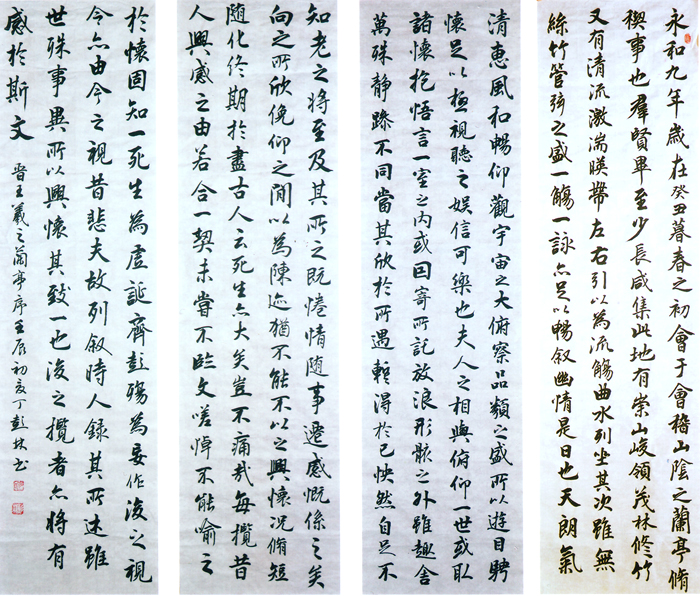 永和九年歲在癸丑暮春之初會于會稽山陰之蘭亭脩
稧事也羣賢畢至少長咸集此地有崇山峻領茂林修竹
又有清流激湍暎帶左右引以為流觴曲水列坐其次雖無
絲竹管弦之盛一觴一詠亦足以暢敘幽情是日也天朗氣
清惠風和暢仰觀宇宙之大俯察品類之盛所以遊目騁
懷足以極視聽之娛信可樂也夫人之相與俯仰一世或取
諸懷抱悟言一室之內或因寄所託放浪形骸之外雖趣舍
萬殊靜躁不同當其欣於所遇蹔得於己怏然自足不
知老之將至及其所之既惓情隨事遷感慨係之矣
向之所欣俛仰之閒以為陳迹猶不能不以之興懷況脩短
隨化終期於盡古人云死生亦大矣豈不痛哉每攬昔
人興感之由若合一契未嘗不臨文嗟悼不能喻之
於懷固知一死生為虛誕齊彭殤為妄作後之視
今亦由今之視昔悲夫故列敘時人錄其所述雖
世殊事異所以興懷其致一也後之攬者亦將有
感於斯文 晉王羲之蘭亭序壬辰初夏丁彭林书